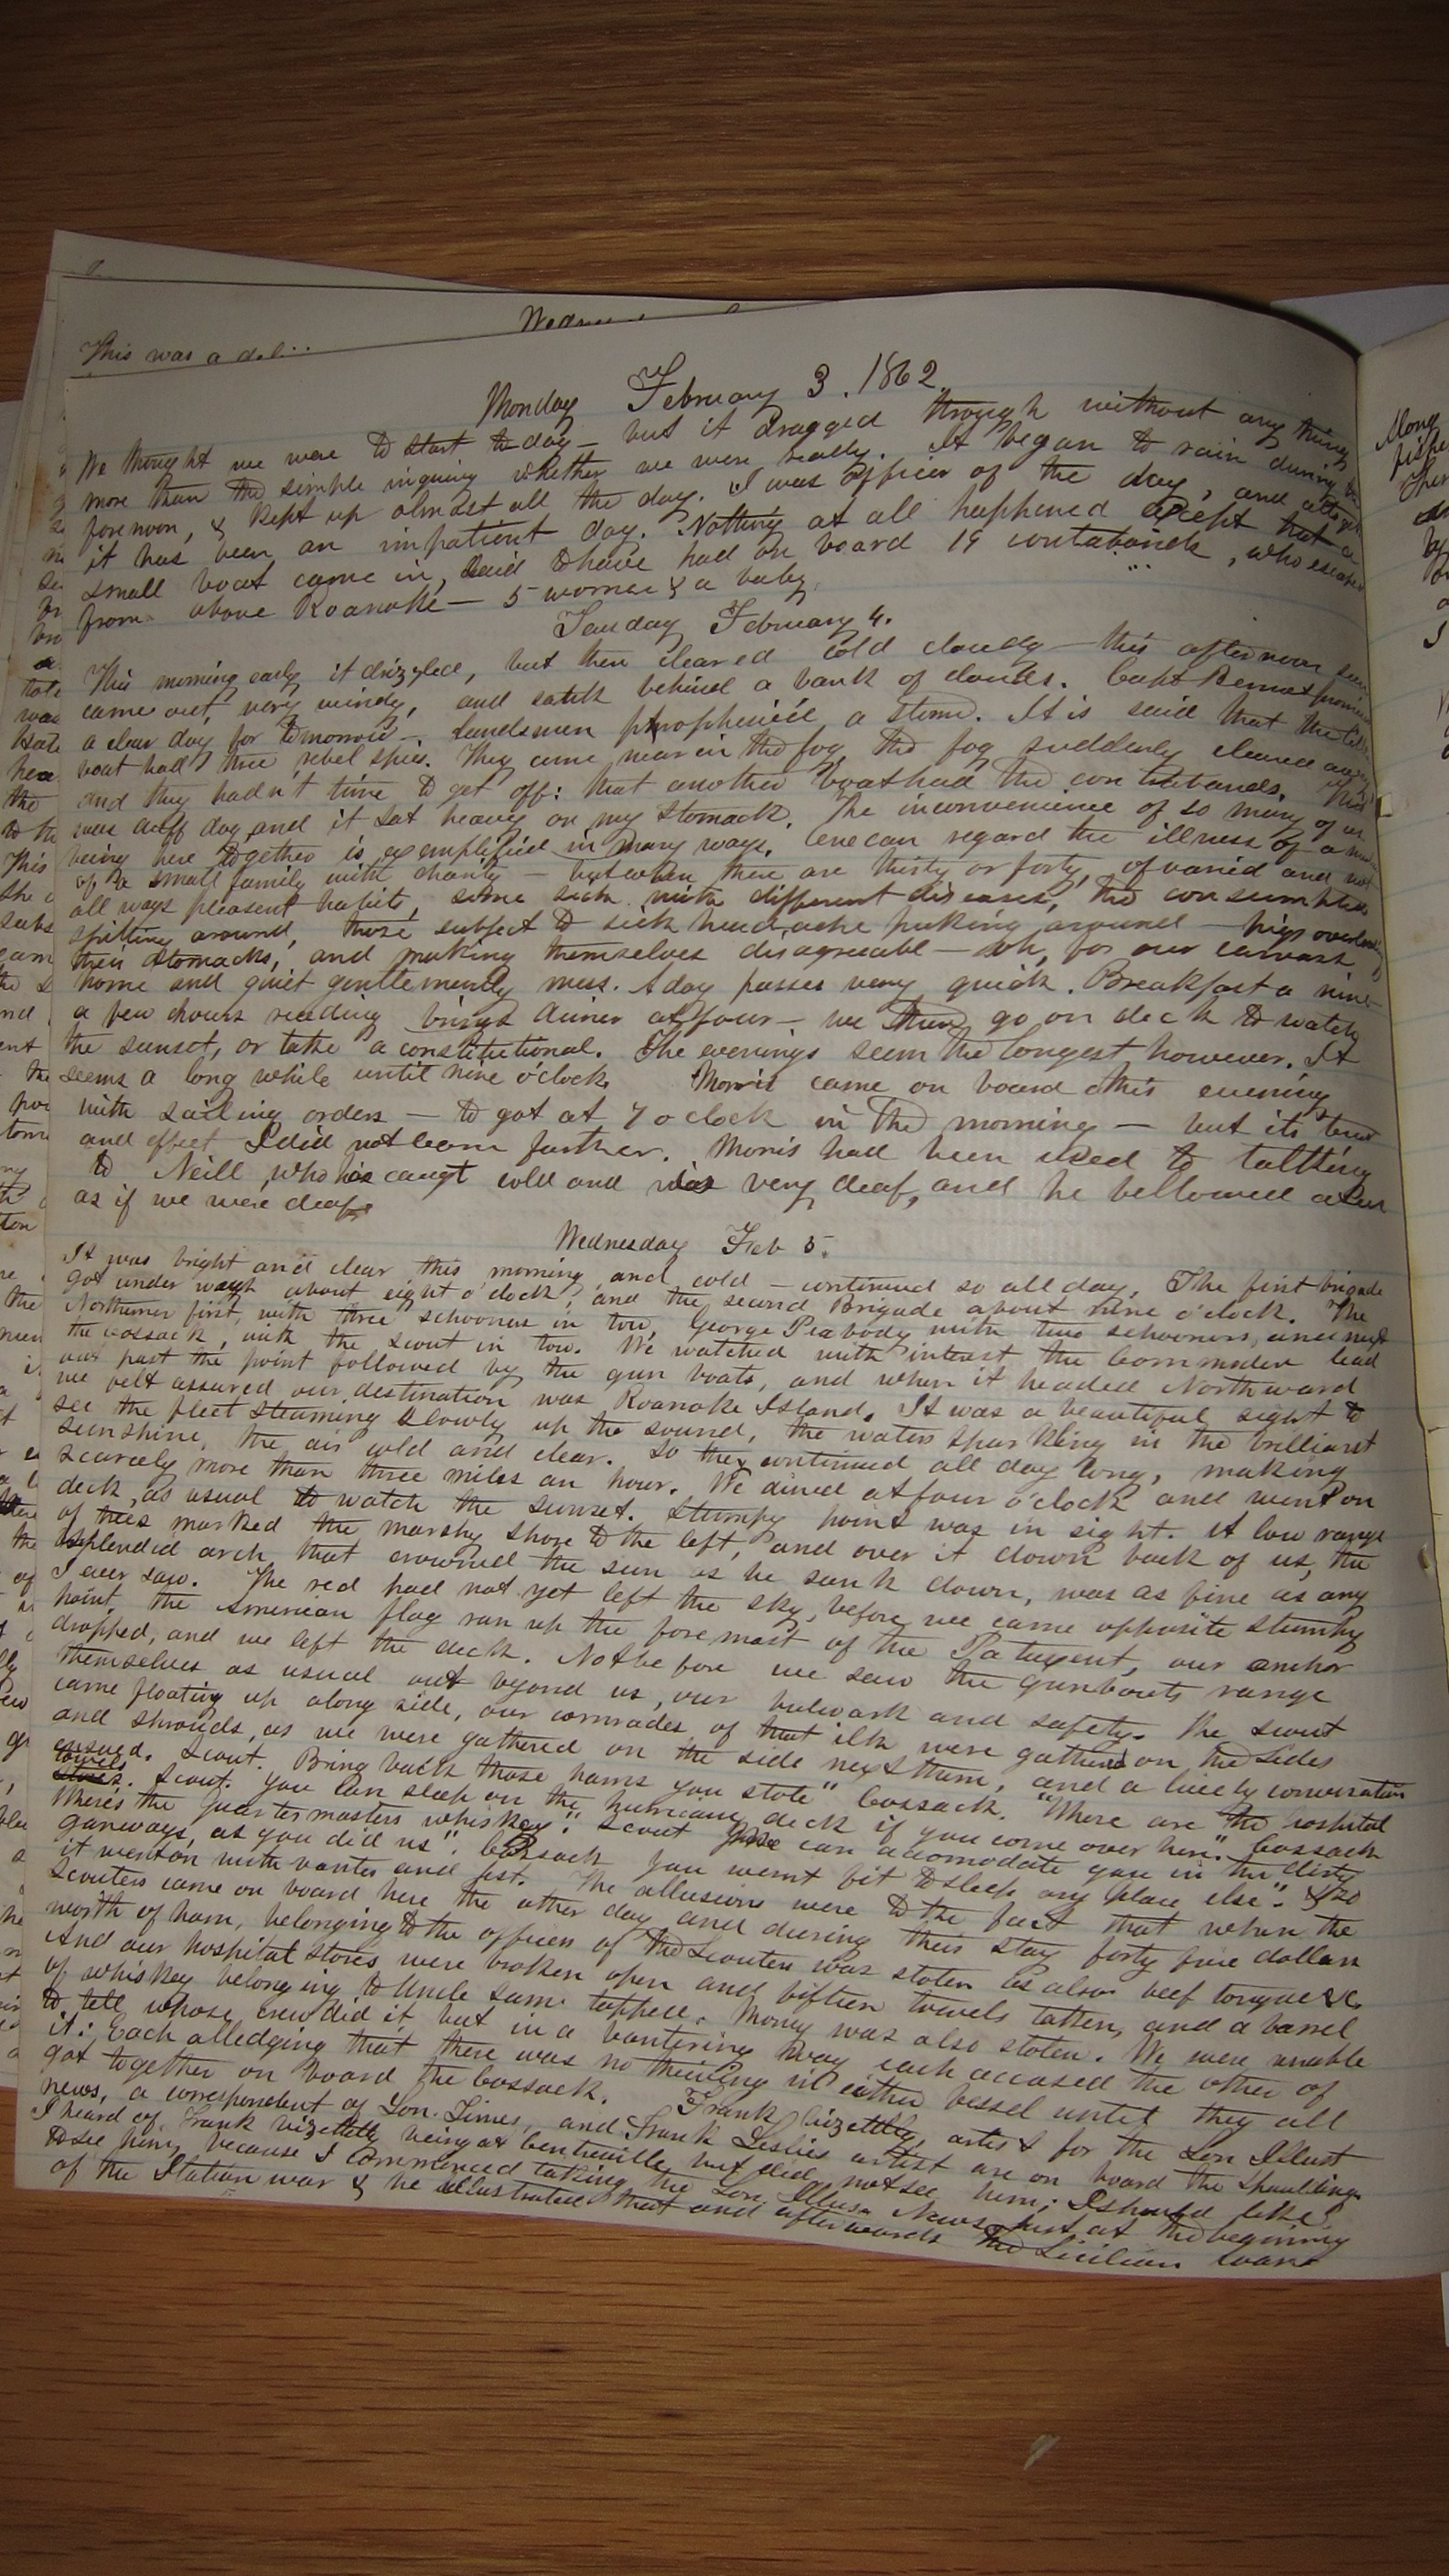 Wednes
This was a del
Monday February 3. 1862.
We thought we were to start to day – but it dragged through without any thing
more than the simple inquiry whether we were ready. It began to rain during the
forenoon, & kept up almost all the day. I was officer of the day, and altogeth
it has been an impatient day. Nothing at all happened except that a
small boat came in, said to have had on board 19 contabands, who escaped
from above Roanoke – 5 women & a baby.
Teusday February 4.
This morning early it drizzled, but then cleared cold cloudy – this afternoon sun
came out, very windy, and sank behind a bank of clouds. Capt Bennet promised
a clear day for tomorrow – landsmen prophesied a storm. It is said that the little
boat had three rebel spies. They came near in the fog, the fog suddenly cleared away
and they hadn't time to get off: that another boat had the contrabands. This
was duff day and it sat heavy on my stomack. The inconvenience of so many of us
being here together is exemplified in many ways. One can regard the illness of a
of a small family with charity – but when there are thirty or forty, of varied and not
all ways pleasent habits, some sick with different diseases, the consumptive
spitting around, those subject to sick head-ache puking around – pigs overloading
their stomacks, and making themselves disagreeable – oh, for our canvass
home and quiet gentlemenly mess. A day passes very quick. Breakfast a nine –
a few hours reading brings dinner at four – we then go on deck to watch
the sunset, or take a constitutional. The evenings seem the longest however. It
seems a long while until nine o'clock. Morris came on board this evening
with sailing orders – to got at 7 o clock in the morning – but its
and effect I did not learn further. Morris had been used to talking
to Neill, who has caugt cold and was very deaf, and he bellowed at us
as if we were deaf.
Wednesday Feb 5.
It was bright and clear this morning, and cold – continued so all day. The first brigade
got under waygh about eight o'clock, and the second Brigade about nine o'clock. The
Northerner first, with three schooners in tow, George Peabody with two schooners, and next
the Cossack, with the scout in tow. We watched with interest the Commodore lead
out past the point followed by the gun boats, and when it headed Northward
we felt assured our destination was Roanoke Island. It was a beautiful sight to
see the fleet steaming slowly up the sound, the waters sparkling in the brilliant
sunshine, the air cold and clear. So they continued all day long, making
scarcely more than three miles an hour. We dined at four o'clock and went on
deck, as usual to watch the sunset. Stumpy point was in sight. A low range
of trees marked the marshy shore to the left, and over it down back of us, the
splendid arch that crowned the sun as he sank down, was as fine as any
I ever saw. The red had not yet left the sky, before we came opposite Stumpy
point, the American flag ran up the foremost of the Patuxent, our anchor
dropped, and we left the deck. Not before we saw the gunboats range
themselves as usual out beyond us, our bulwark and safety. The scout
came floating up along side, our comrades of that ilk were gathered on the sides
and shrouds, as we were gathered on the side next them, and a lively conversation
ensued. Scout. Bring back those hams you stole" Cossack. "Where are the hospital
towels
stores. Scout. You can sleep on the hurricane deck if you come over here." Cossack
Wheres the quartermasters whiskey." Scout We can acomodate you in the dirty
gangways, as you did us". Cossack you wernt fit to sleep any place else". & so
it went on with banter and jest. The allusions were to the fact that when the
Scouters came on board here the other day and during their stay forty five dollars
worth of ham, belonging to the officers of the Scouters was stolen as also beef tongue &c.
And our hospital stores were broken open and fifteen towels taken, and a barrel
of whiskey belonging to Uncle Sam tapped. Money was also stolen. We were unable
to tell whose crew did it but in a bantering way each accused the other of
it: Each alledging that there was no thieving in either vessel until they all
got together on board the Cossack. Frank Vizettelly, artist for the Lon Illust
news, a correspondent of Lon. Times, and Frank Leslies artist are on board the Spaulding.
I heard of Frank Vizettelly being at Centreville but did not see him; I should like
to see him, because I commenced taking the Lon. Illus. News just at the beginning
of the Italian war & he illustrated that and afterwards the Sicilian war